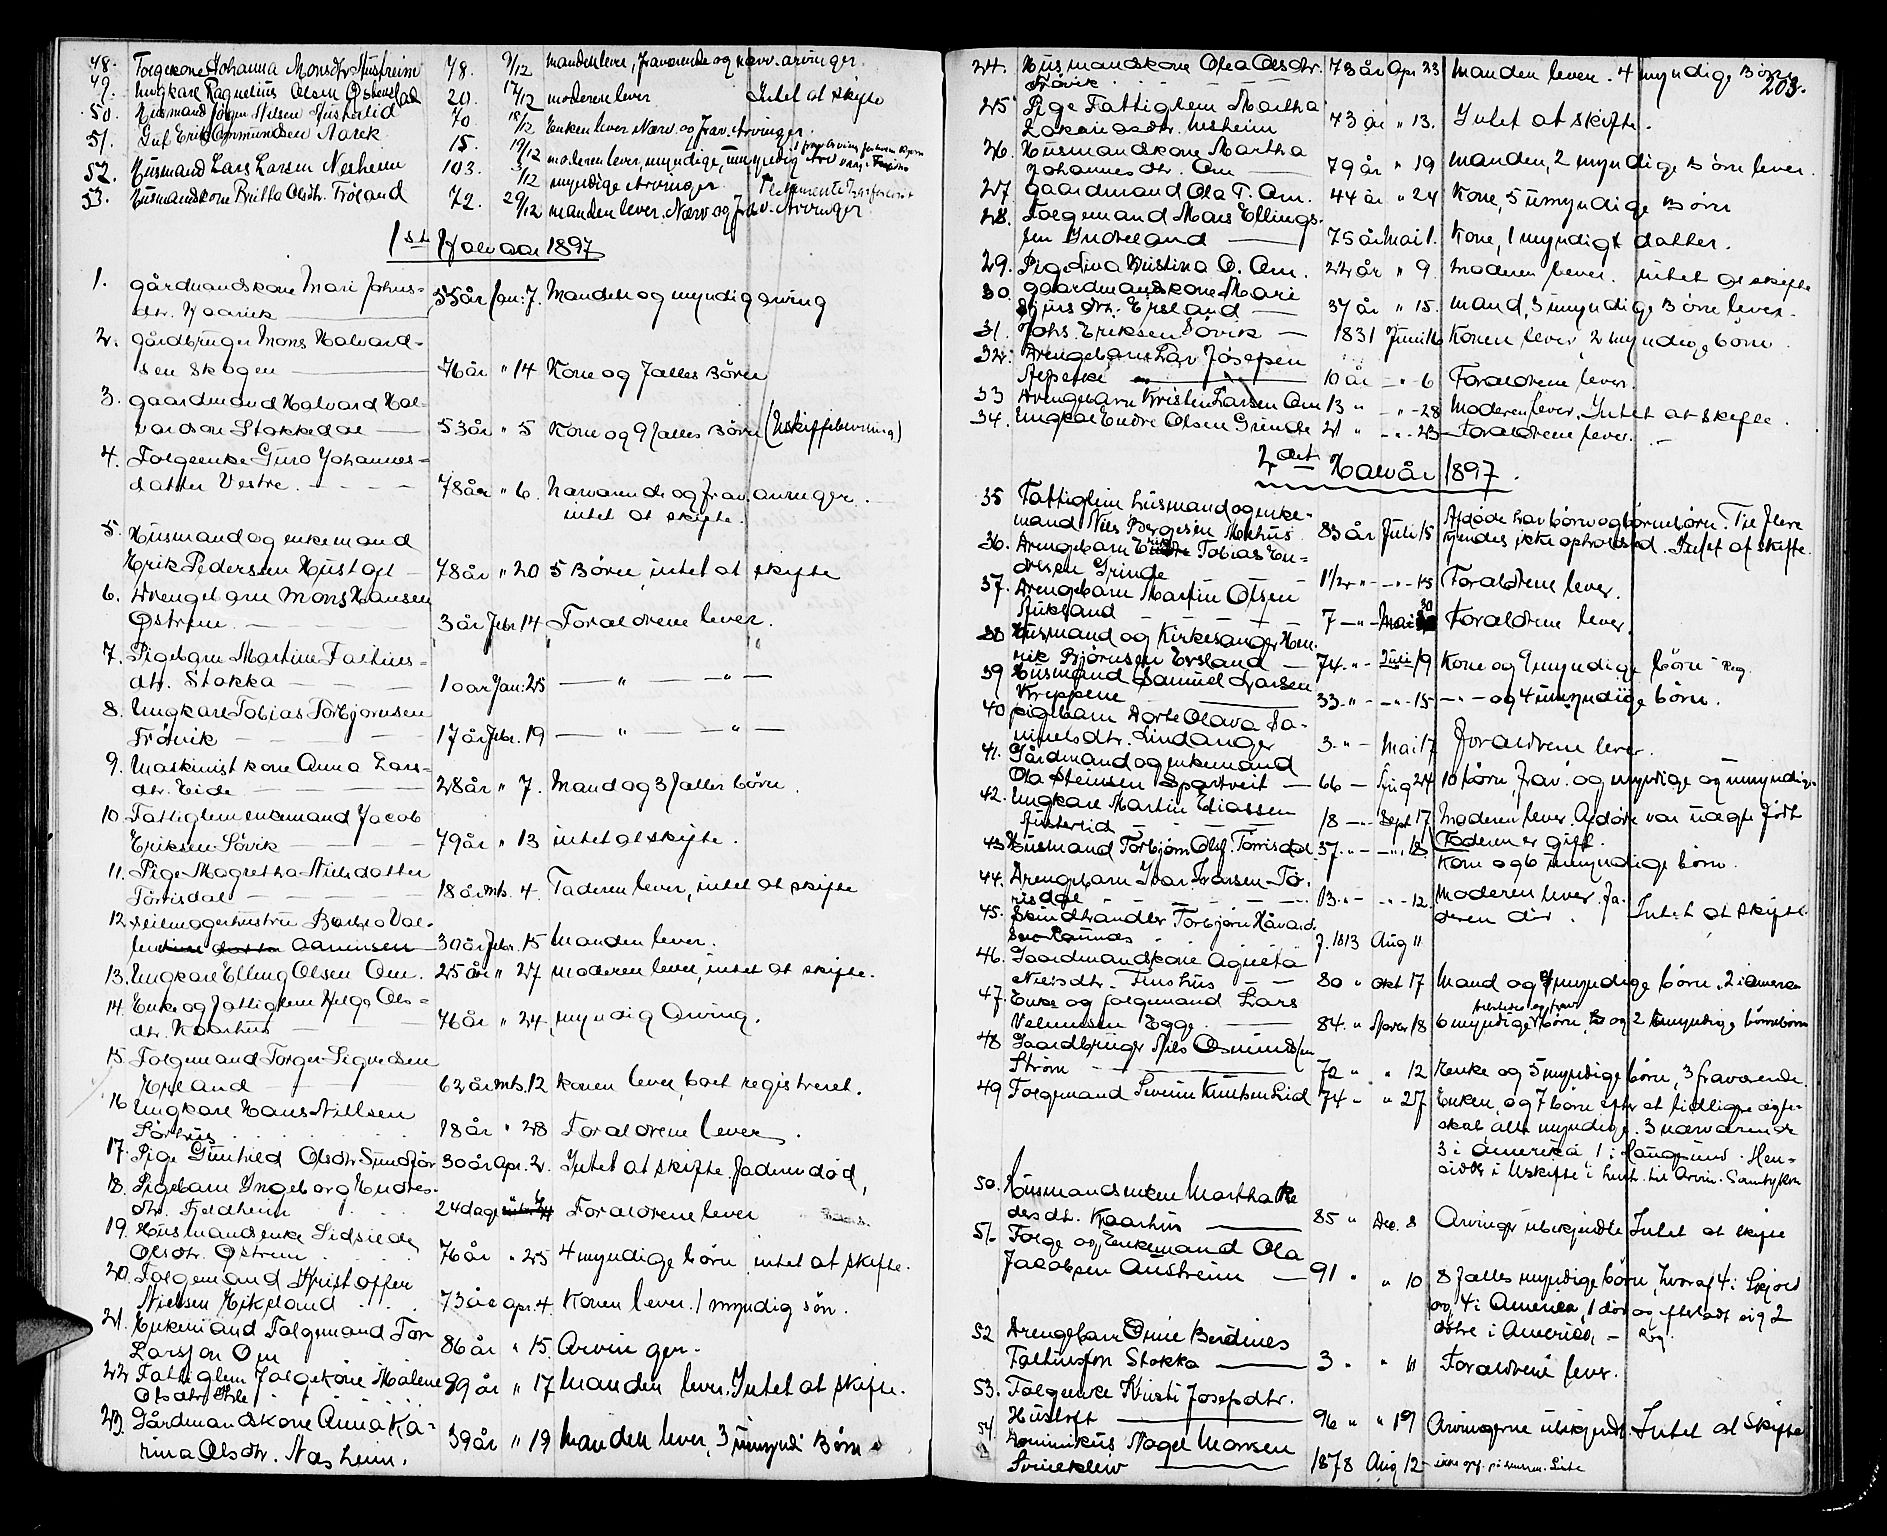 48. Folgekone Johanna Monsdtr Austreim 78. 9/12 manden lever, fraværende og nærv. arvinger.
49. Ungkare Ragnelius Olsen Østenstad 20. 17/12 moderen lever Intet at skifte
50. Husmand Jørgen Nilsen Austerlid 70. 18/12 Enken lever Nærv. og frav. Arvinger.
51. Guf Erik Omundsen Aarek 15. 19/12 moderen lever, myndige, umyndig
52. Husmand Lars Larsen Nesheim 103. 3/12 myndige Arvinger
53. Husmandskone Britha Olsdtr. Frøland 72. 29/12 manden lever. Nærv og frav. Arvinger.
1st Halvaar 1897
1. gårdmandskone Mari Johns-
dtr. Haarik 55 år Jan: 7. Manden og myndig arving
2. gårdbruger Mons Halvard-
sen Skogen 76 år " 14 Kone og fælles Børn
3. gaardmand Halvard Hal-
vardson Stokkedal 53 år " 5 Kone og 9 fælles Børn (Uskiftebevilling)
4. Folgeenke Guro Johannes-
datter Vestre 78 år " 6. nærværende og frav. arvinger.
intet at skifte.
5. Husmand og enkemand
Erik Pedersen Hustoft 78 år " 20 5 Børn, intet at skifte
6. Drengebarn Mons Hansen
Østrem 3 år Febr. 14 Forældrene lever.
7. Pigebarn Martine Faltins-
dtr. Stokka 10 år Jan: 25 — " — — " —
8. Ungkare Tobias Torbjørnsen
Frøvik 17 år Febr. 19 — " — — " —
9. Maskinist kone Anna Lars-
dtr. Eide 28 år " 7. Mand og 3 fælles børn.
10. Fattiglem enkemand Jacob
Eriksen Søvik 79 år " 13 intet at skifte.
11. Pige Magretha Nielsdatter
Tørrisdal 18 år Mts. 4. Faderen lever, intet at skifte
12. Seilmagerhustru Barbro Val-
Aanensen 30 år Febr. 15 Manden lever.
13. Ungkare Elling Olsen Om. 25 år " 27 moderen lever, intet at skifte.
14. Enke og fattiglem Helge Ols-
dtr. Kaarhus 76 år " 24, myndig Arving.
15. Folgemand Torger Signedsen
Erland 62 år Mts. 12 konen lever, boet registreret.
16. Ungkare Hans Nillsen
Sørhus 18 år " 28 Forældrene lever.
17. Pige Gunhild Olsdtr Sundfør 30 år Apr. 2. Intet at skifte, faderen død,
18. Pigebarn Ingeborg Endres-
dtr. Fjeldheim 24 dage Forældrene lever
19. Husmandsenke Sidsele
Olsdtr. Østrem 76 år " 25 4 myndige børn intet at skifte.
20. Folgemand Kristoffer
Nielsen Eikeland 73 år Apr. 4. Konen lever. 1 myndig søn.
21. Enkemand Folgemand Tor
Larsson Om 86 år " 15. Arvinger.
22. Fattiglem Folgekone Malene
Olsdtr. Ihle 89 år " 17 Manden lever. Intet at skifte.
23. Gårdmandskone Anna Ka-
rina Olsdtr. Nesheim. 39 år " 19 Manden lever, 3 umyndi Børn
203.
24. Husmandskone Olea Olsdtr. 73 år Apr 23 Manden lever. 4 myndige Børn
Frøvik
25 Pige Fattiglem Martha
Zakariasdtr. Nesheim 73 år " 13. Intet at skifte.
26. Husmandskone Martha
Johannesdtr. Om 79 år " 19 manden, 2 myndige Børn lever.
27 gaardmand Ola T. Om. 44 år " 24 Kone, 5 umyndige Børn
28. Folgemand Mons Ellings-
sen Indreland 75 år Mai 1. Kone, 1 myndigt datter.
29. Pige Lina Kristina O. Om. 22 år " 9. Moderen lever. intet at skifte
30 gaardmandskone Mari
Sjursdtr. Ersland 37 år " 15. mand, 3 umyndige Børn lever.
31. Johs. Eriksen Søvik 1831 Juni 16 Konen lever, 2 myndige børn.
32. Drengebarn Lars Josefsen
10 år " 6 Forældrene lever.
33 Drengebarn Kristen Larsen Om 13 " " 28 Moderen lever. Intet at skifte.
34. Ungkar Endre Olsen Grinde 21 " " 23 Forældrene lever.
2det Halvår 1897.
35 Fattiglem husmand og enke-
mand Nils Børgesen Mehus 83 år Juli 15 Afdøde har børn og børnebørn. Til flere
kjendes ikke opholdsted. Intet at skifte.
36. Drengebarn Tobias En-
dresen Grinde 1 1/2 " " 15 Forældrene lever.
37. Drengebarn Martin Olsen
7 " Mai 30 Forældrene lever.
38 Husmand og Kirkesanger Hen-
rik Bjørnsen Ersland 74 " Juli 19 Kone og 9 myndige børn. Reg.
39 Husmand Samuel Larsen
Kreppene 33 " " 15 — " — og 4 umyndige børn.
40 pigebarn Dorte Olava Sa-
muelsdtr. Lindanger 3 " Mai 17 Forældrene lever.
41. Gårdmand og enkemand
Ola Steinsen Spartveit 66 — Aug 24 10 børn, frav. og myndige og umyndige
42. Ungkare Martin Eliassen
Austerlid 18 — Sept 17 Moderen lever. Afdøde var uægte født
Faderen er gift.
43 Husmand Torbjørn Olsf. Tørrisdal 57 " " 18 Kone og 6 umyndige børn.
44. Drengebarn Ivar Ivarsen Tør-
risdal 13 " " 12. Moderen lever. Fa-
deren død. Intet at skifte
45. Skindhandler Torbjørn Håvard-
sen Raunes f. 1813 Aug 11
46. Gaardmandskone Agneta
Nielsdtr. Finshus 80 " Okt 17 Mand og 8 myndige børn. 2 i Amerika
47. Enke og folgemand Lars
Velumsen Egge 84. " Novbr 18 6 myndige børn og 2 umyndige børnebørn
48 Gaardbruger Nils Osmunds
Strøm 72 " " 12 Enke og 5 myndige børn, 3 fraværende.
49 Folgemand Severin Knutsen Lid 74 " " 27 Enken og 7 børn efter et tidligere ægte-
skab alle myndige. 3 nærværende
3 i Amerika 1 i Haugesund. Hen-
sidder i Uskifte i henh. til Arvin. Samtykke
50. Husmandsenken Martha Pe
dersdtr. Kaarhus 85 " Dec. 8 Arvinger ubekjendte Intet at skifte
51. Folge og Enkemand Ola
Jacobsen Austreim 91 " " 10 8 fælles myndige børn, hvoraf 4 i Skjold
og 4 i Amerika, 1 død og efterladt sig 2
døtre i Amerika, — Reg.
52 Drengebarn Orne Berdines
Faltinsson Stokka 3 " " 11 Forældrene lever.
53. Folgeenke Kirsti Josefsdtr.
Hustoft 96 " " 19 Arvingerne ubekjendt Intet at Skifte
54. Dominikus Nagel Monsen
Svineklew 1878 Aug 12 ikke opf. på Liste